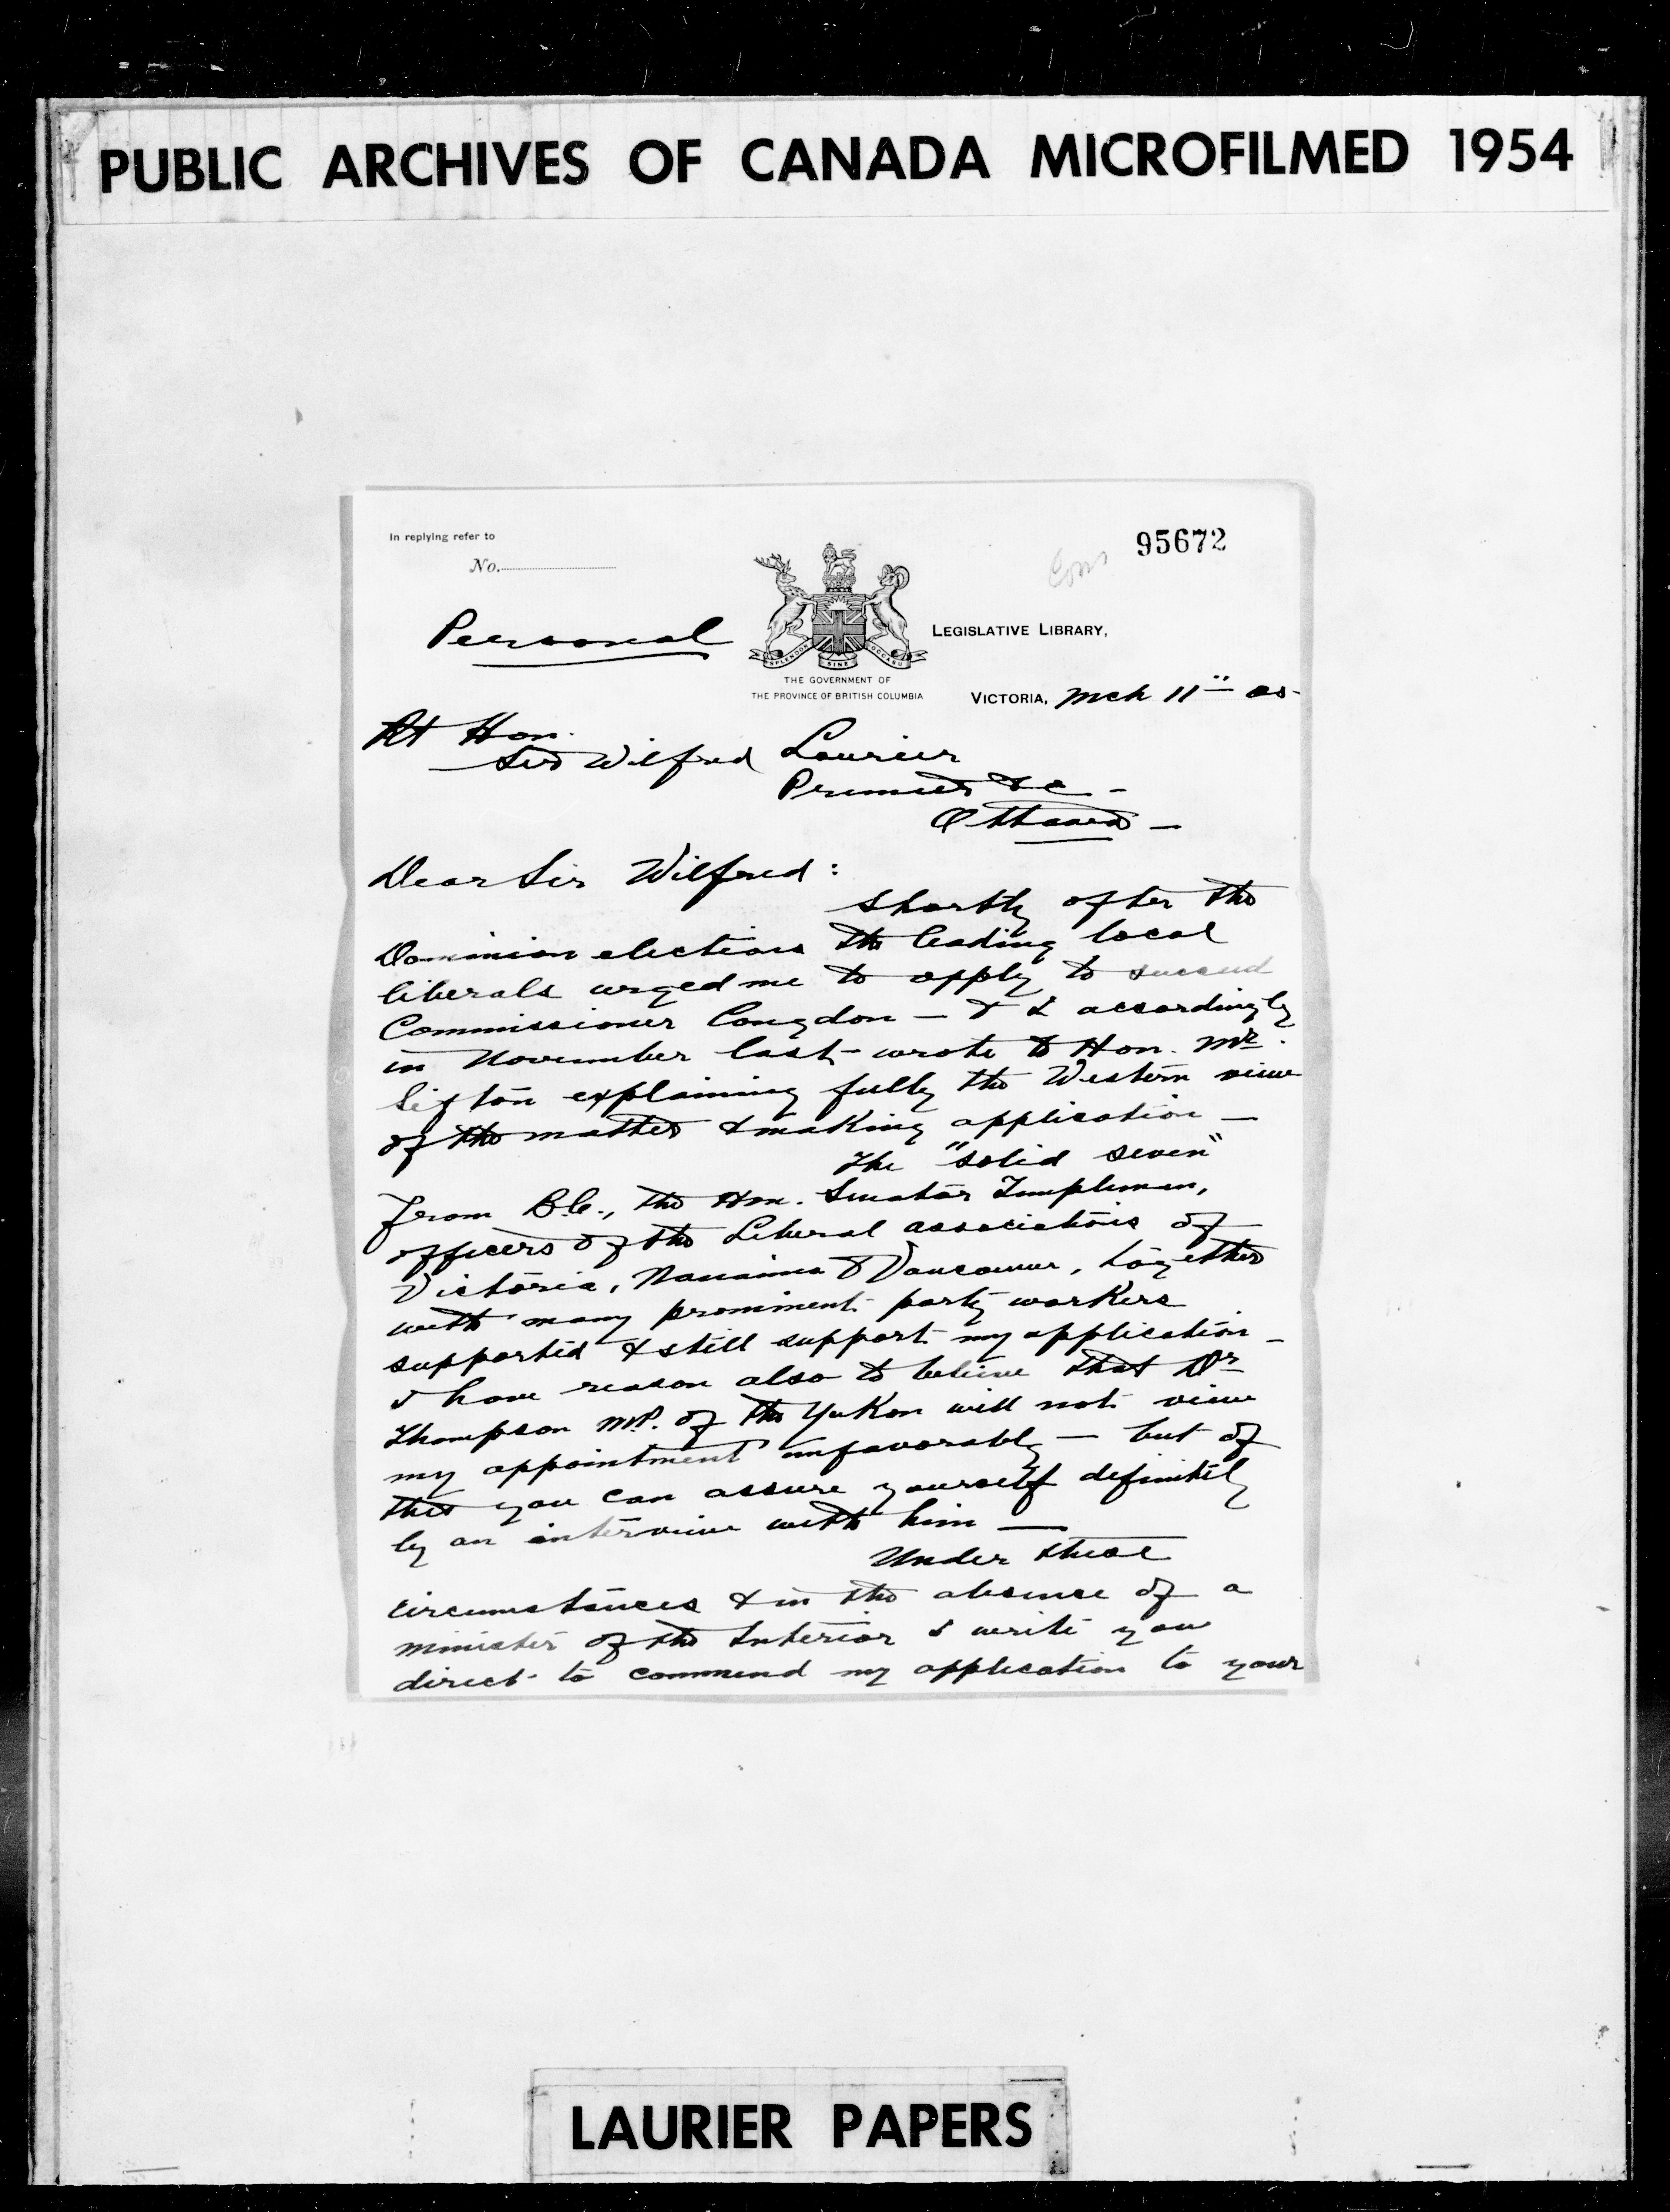 PUBLIC ARCHIVES OF CANADA MICROFILMED 1954
In replying refer to
No.
95672
Cons
Personal
SPLENDOR SINE OCCASU
LEGISLATIVE LIBRARY,
THE GOVERNMENT OF
THE PROVINCE OF BRITISH COLUMBIA
VICTORIA, Mch 11" 05-
Rt Hon.
Sir Wilfred Laurier
Premier &c -
Ottawa -
Dear Sir Wilfred:
Shortly after the
Dominion elections the leading local
liberals urged me to apply to succeed
Commissioner Congdon - & I accordingly
in November last - wrote to Hon. Mr.
Sifton explaining fully the Western view
of the matter & making application -
The "solid seven"
from B.C., the Hon. Senator Templeman,
officers of the Liberal associations of
Victoria, Nanaimo & Vancouver, together
with many prominent party workers
supported & still support my application -
I have reason also to believe that Dr
Thompson M.P. of the Yukon will not view
my appointment unfavorably - but of
this you can assure yourself definitely
by an interview with him -
Under these
circumstances & in the absence of a
minister of the Interior I write you
direct to commend my application to your
LAURIER PAPERS